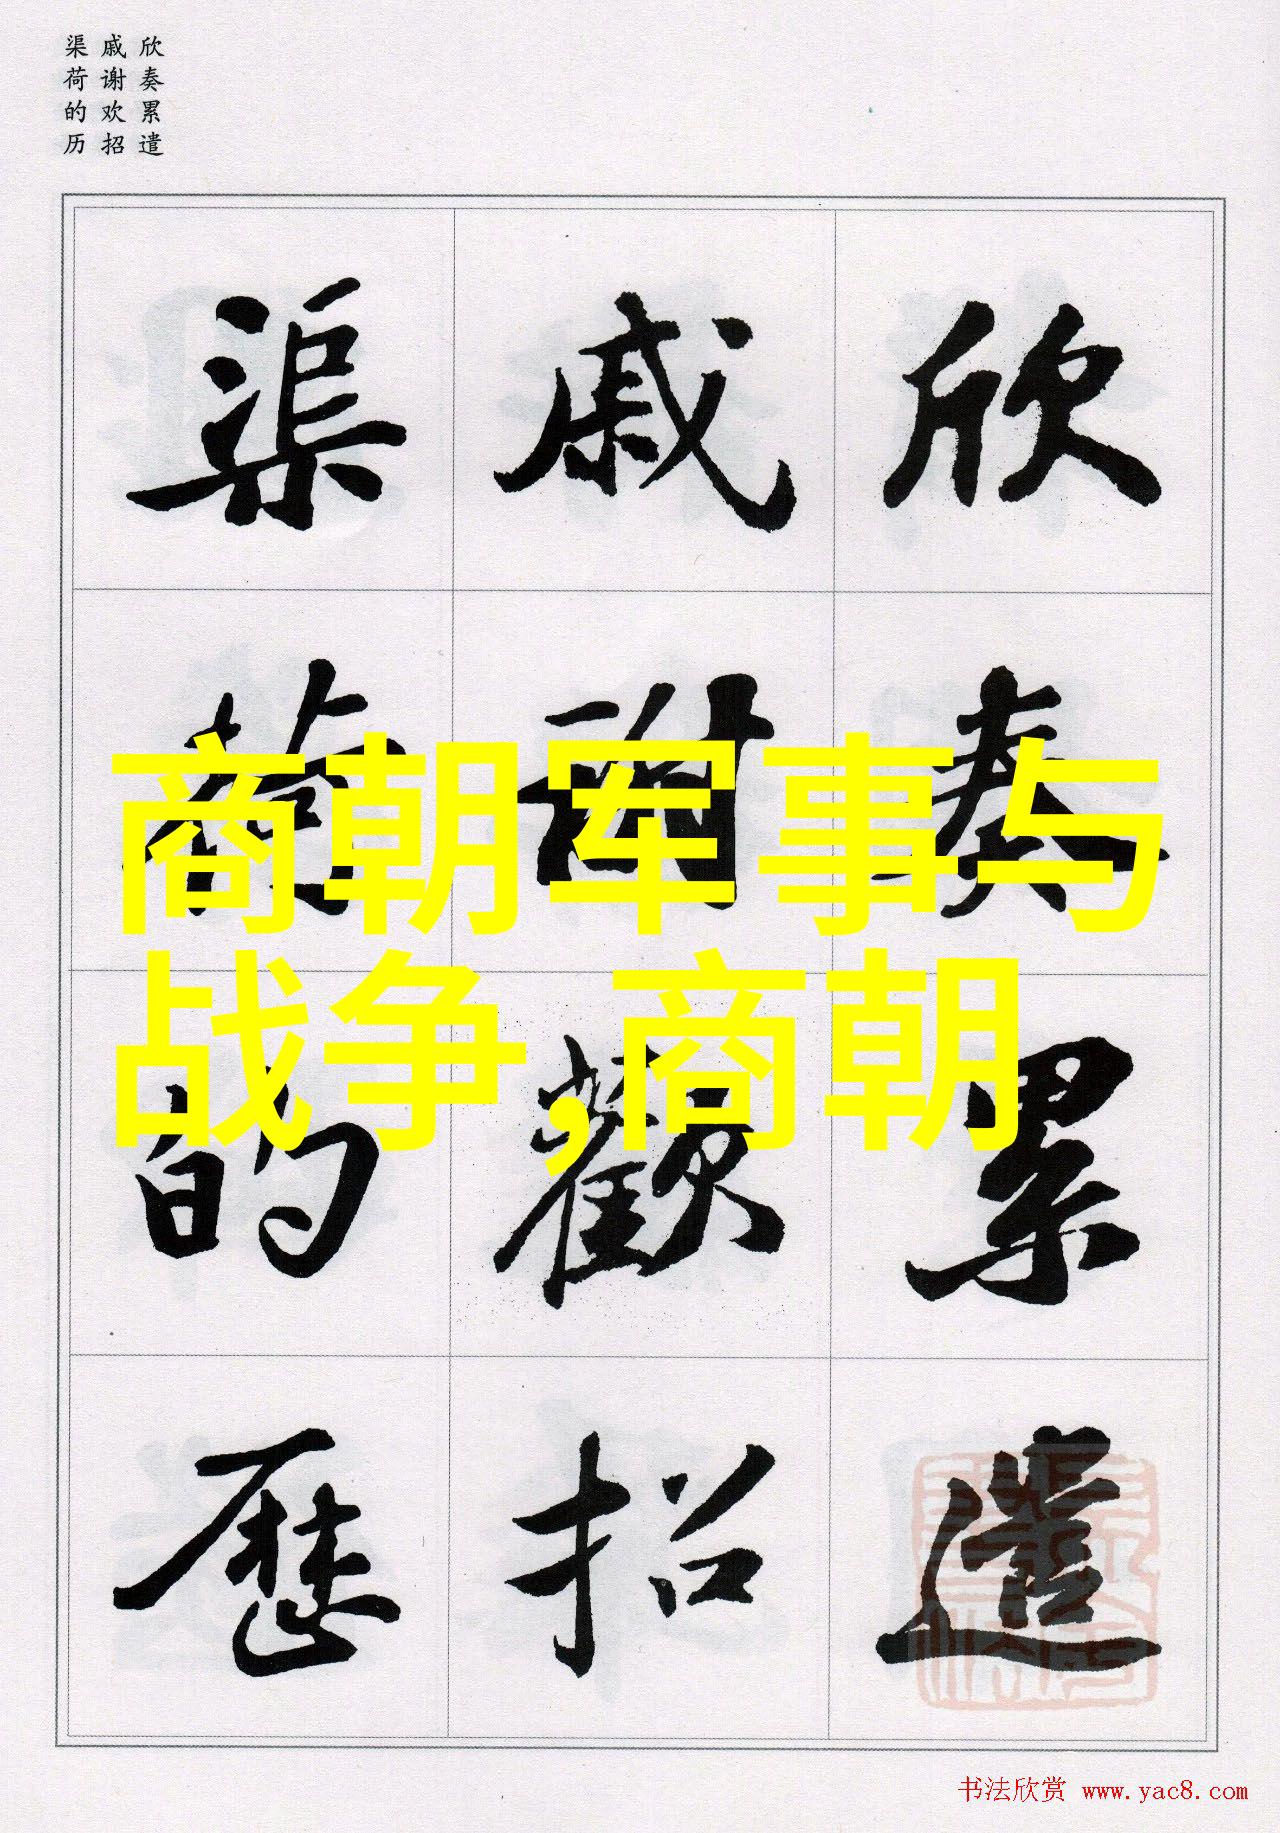 欣奏累遣
戚谢欢招
渠荷的历
欣奏累遣
戚謝歡招
渠荷的歷
商朝军事与
战争,商朝
书法欣赏 www.yac8.com